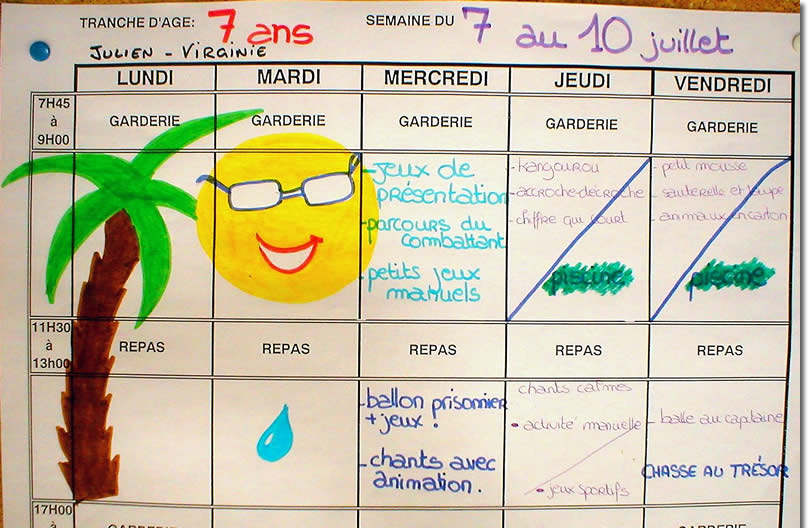 TRANCHE D'AGE: 7 ans SEMAINE DU 7 au 10 juillet
JULIEN - VIRGINIE
LUNDI MARDI MERCREDI JEUDI VENDREDI
7H45
à
9H00
GARDERIE GARDERIE GARDERIE GARDERIE GARDERIE
- jeux de
présentation
- parcours du
combattant
- petits jeux
manuels
- Kangourou
- accroche-décroche
- chiffre qui court
piscine
- petit mousse
- sauterelle et taupe
- animaux en carton
piscine
11H30
à
13h00
REPAS REPAS REPAS REPAS REPAS
- ballon prisonnier
+ jeux.
- chants avec
animation.
chants calmes
• activité manuelle
• jeux sportifs
- balle au capitaine
CHASSE AU TRÉSOR
17H00
à
GARDERIE GARDERIE